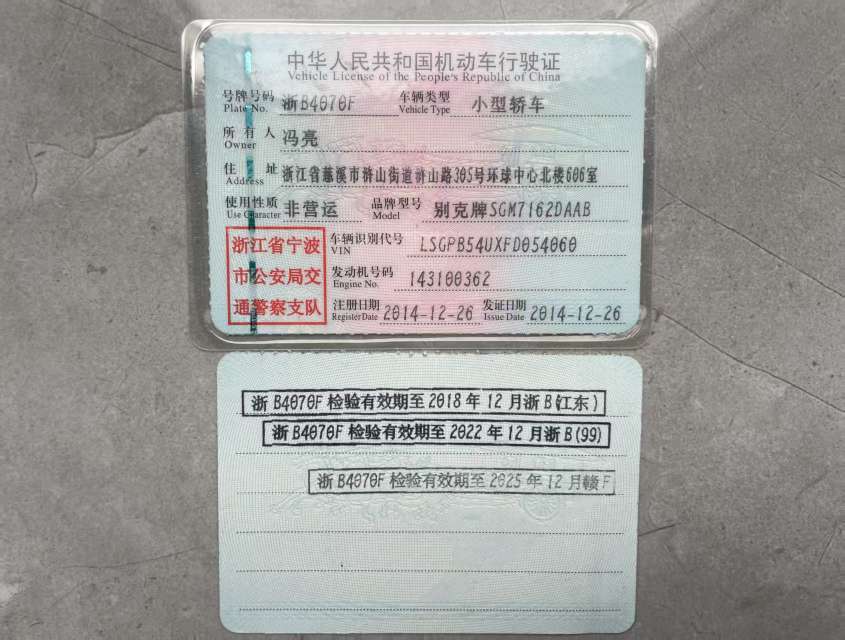 中华人民共和国机动车行驶证
Vehicle License of the People's Republic of China
号牌号码 浙B4070F 车辆类型 小型轿车
Plate No. Vehicle Type
所有人 冯亮
Owner
住址 浙江省慈溪市浒山街道浒山路305号环球中心北楼606室
Address
使用性质 非营运 品牌型号 别克牌SGM7162DAAB
Use Character Model
浙江省宁波
市公安局交
通警察支队
车辆识别代号 LSGPB54UXFD054060
VIN
发动机号码 143100362
Engine No.
注册日期 2014-12-26 发证日期 2014-12-26
Register Date Issue Date
浙B4070F检验有效期至2018年12月浙B(江东)
浙B4070F检验有效期至2022年12月浙B(99)
浙B4070F检验有效期至2025年12月赣F